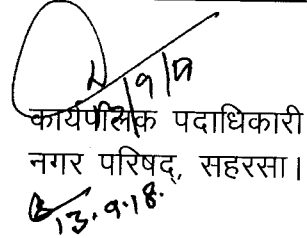 कार्यपालक पदाधिकारी
नगर परिषद्, सहरसा।
13.9.18.